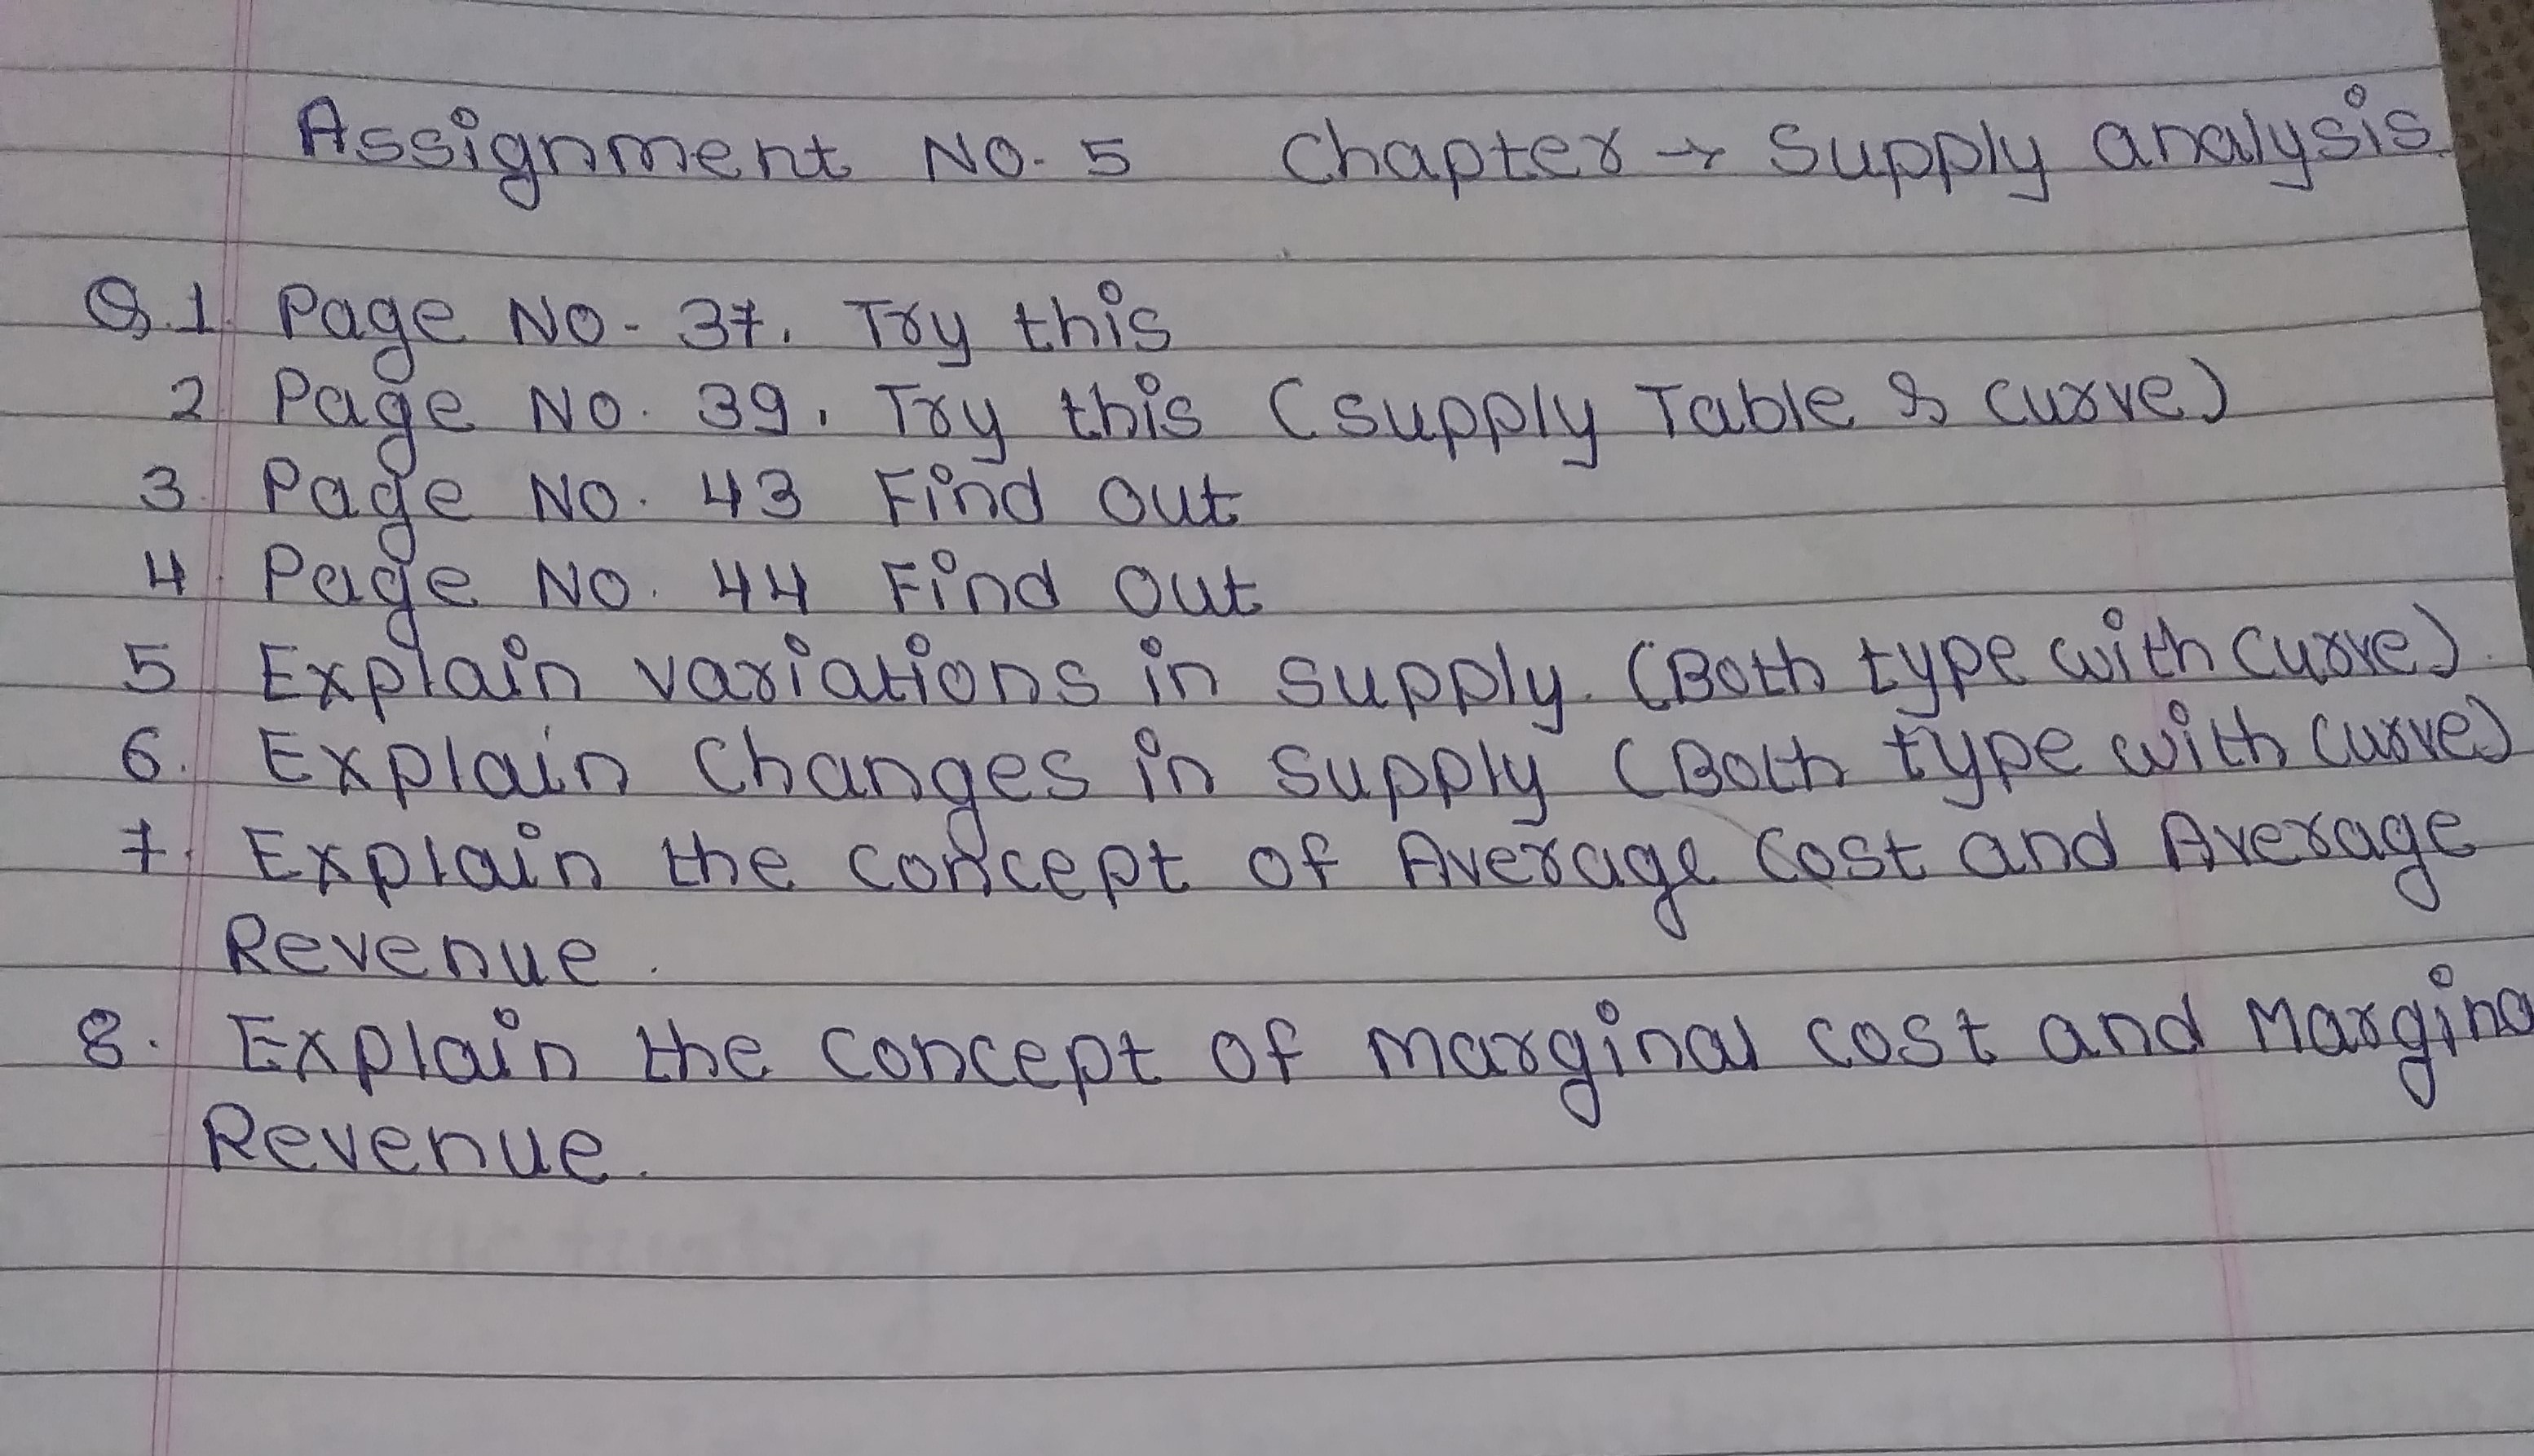 Assignment No. 5 Chapter → Supply analysis
Q.1. Page No. 37. Try this
2. Page No. 39. Try this (supply Table & curve)
3. Page No. 43 Find out
4. Page No. 44 Find out
5 Explain variations in supply. (Both type with curve).
6. Explain Changes in supply (Both type with curve)
7. Explain the concept of Average Cost and Average
Revenue.
8. Explain the concept of marginal cost and Margina
Revenue.